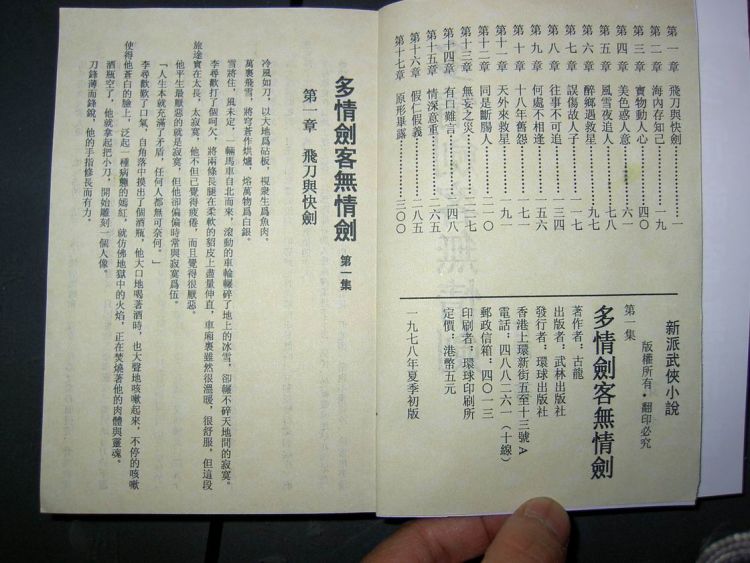 第一章 飛刀與快劍…………一
第二章 海內存知己…………一九
第三章 寶物動人心…………四〇
第四章 美色惑人意…………六一
第五章 風雪夜追人…………七八
第六章 醉鄉遇救星…………九七
第七章 誤傷故人子…………一一七
第八章 往事不可追…………一三四
第九章 何處不相逢…………一五六
第十章 十八年舊怨…………一七一
第十一章 天外來救星…………一九一
第十二章 同是斷腸人…………二一〇
第十三章 無妄之災…………二二七
第十四章 有口難言…………二四八
第十五章 情深意重…………二六五
第十六章 假仁假義…………二八五
第十七章 原形畢露…………三〇〇
新派武俠小說
版權所有•翻印必究
多情劍客無情劍
第一集
著作者：古龍
出版者：武林出版社
發行者：環球出版社
香港上環新街五至十三號A
電話：四八八二六一（十線）
郵政信箱：四〇一三
印刷者：環球印刷所
定價：港幣五元
一九七八年夏季初版
多情劍客無情劍 第一集
第一章 飛刀與快劍
冷風如刀，以大地爲砧板，視衆生爲魚肉。
萬裏飛雪，將穹蒼作烘爐，熔萬物爲白銀。
雪將住，風未定，一輛馬車自北而來，滾動的車輪輾碎了地上的冰雪，卻輾不碎天地間的寂寞。
李尋歡打了個呵欠，將兩條長腿在柔軟的貂皮上盡量伸直，車廂裏雖然很溫暖，很舒服，但這段
旅途實在太長，太寂寞，他不但已覺得疲倦，而且覺得很厭惡。
他平生最厭惡的就是寂寞，但他卻偏偏時常與寂寞爲伍。
「人生本就充滿了矛盾，任何人都無可奈何。」
李尋歡歎了口氣，自角落中摸出了個酒瓶，他大口地喝著酒時，也大聲地咳嗽起來，不停的咳嗽
使得他蒼白的臉上，泛起一種病態的嫣紅，就仿佛地獄中的火焰，正在焚燒著他的肉體與靈魂。
酒瓶空了，他就拿起把小刀，開始雕刻一個人像。
刀鋒薄而鋒銳，他的手指修長而有力。